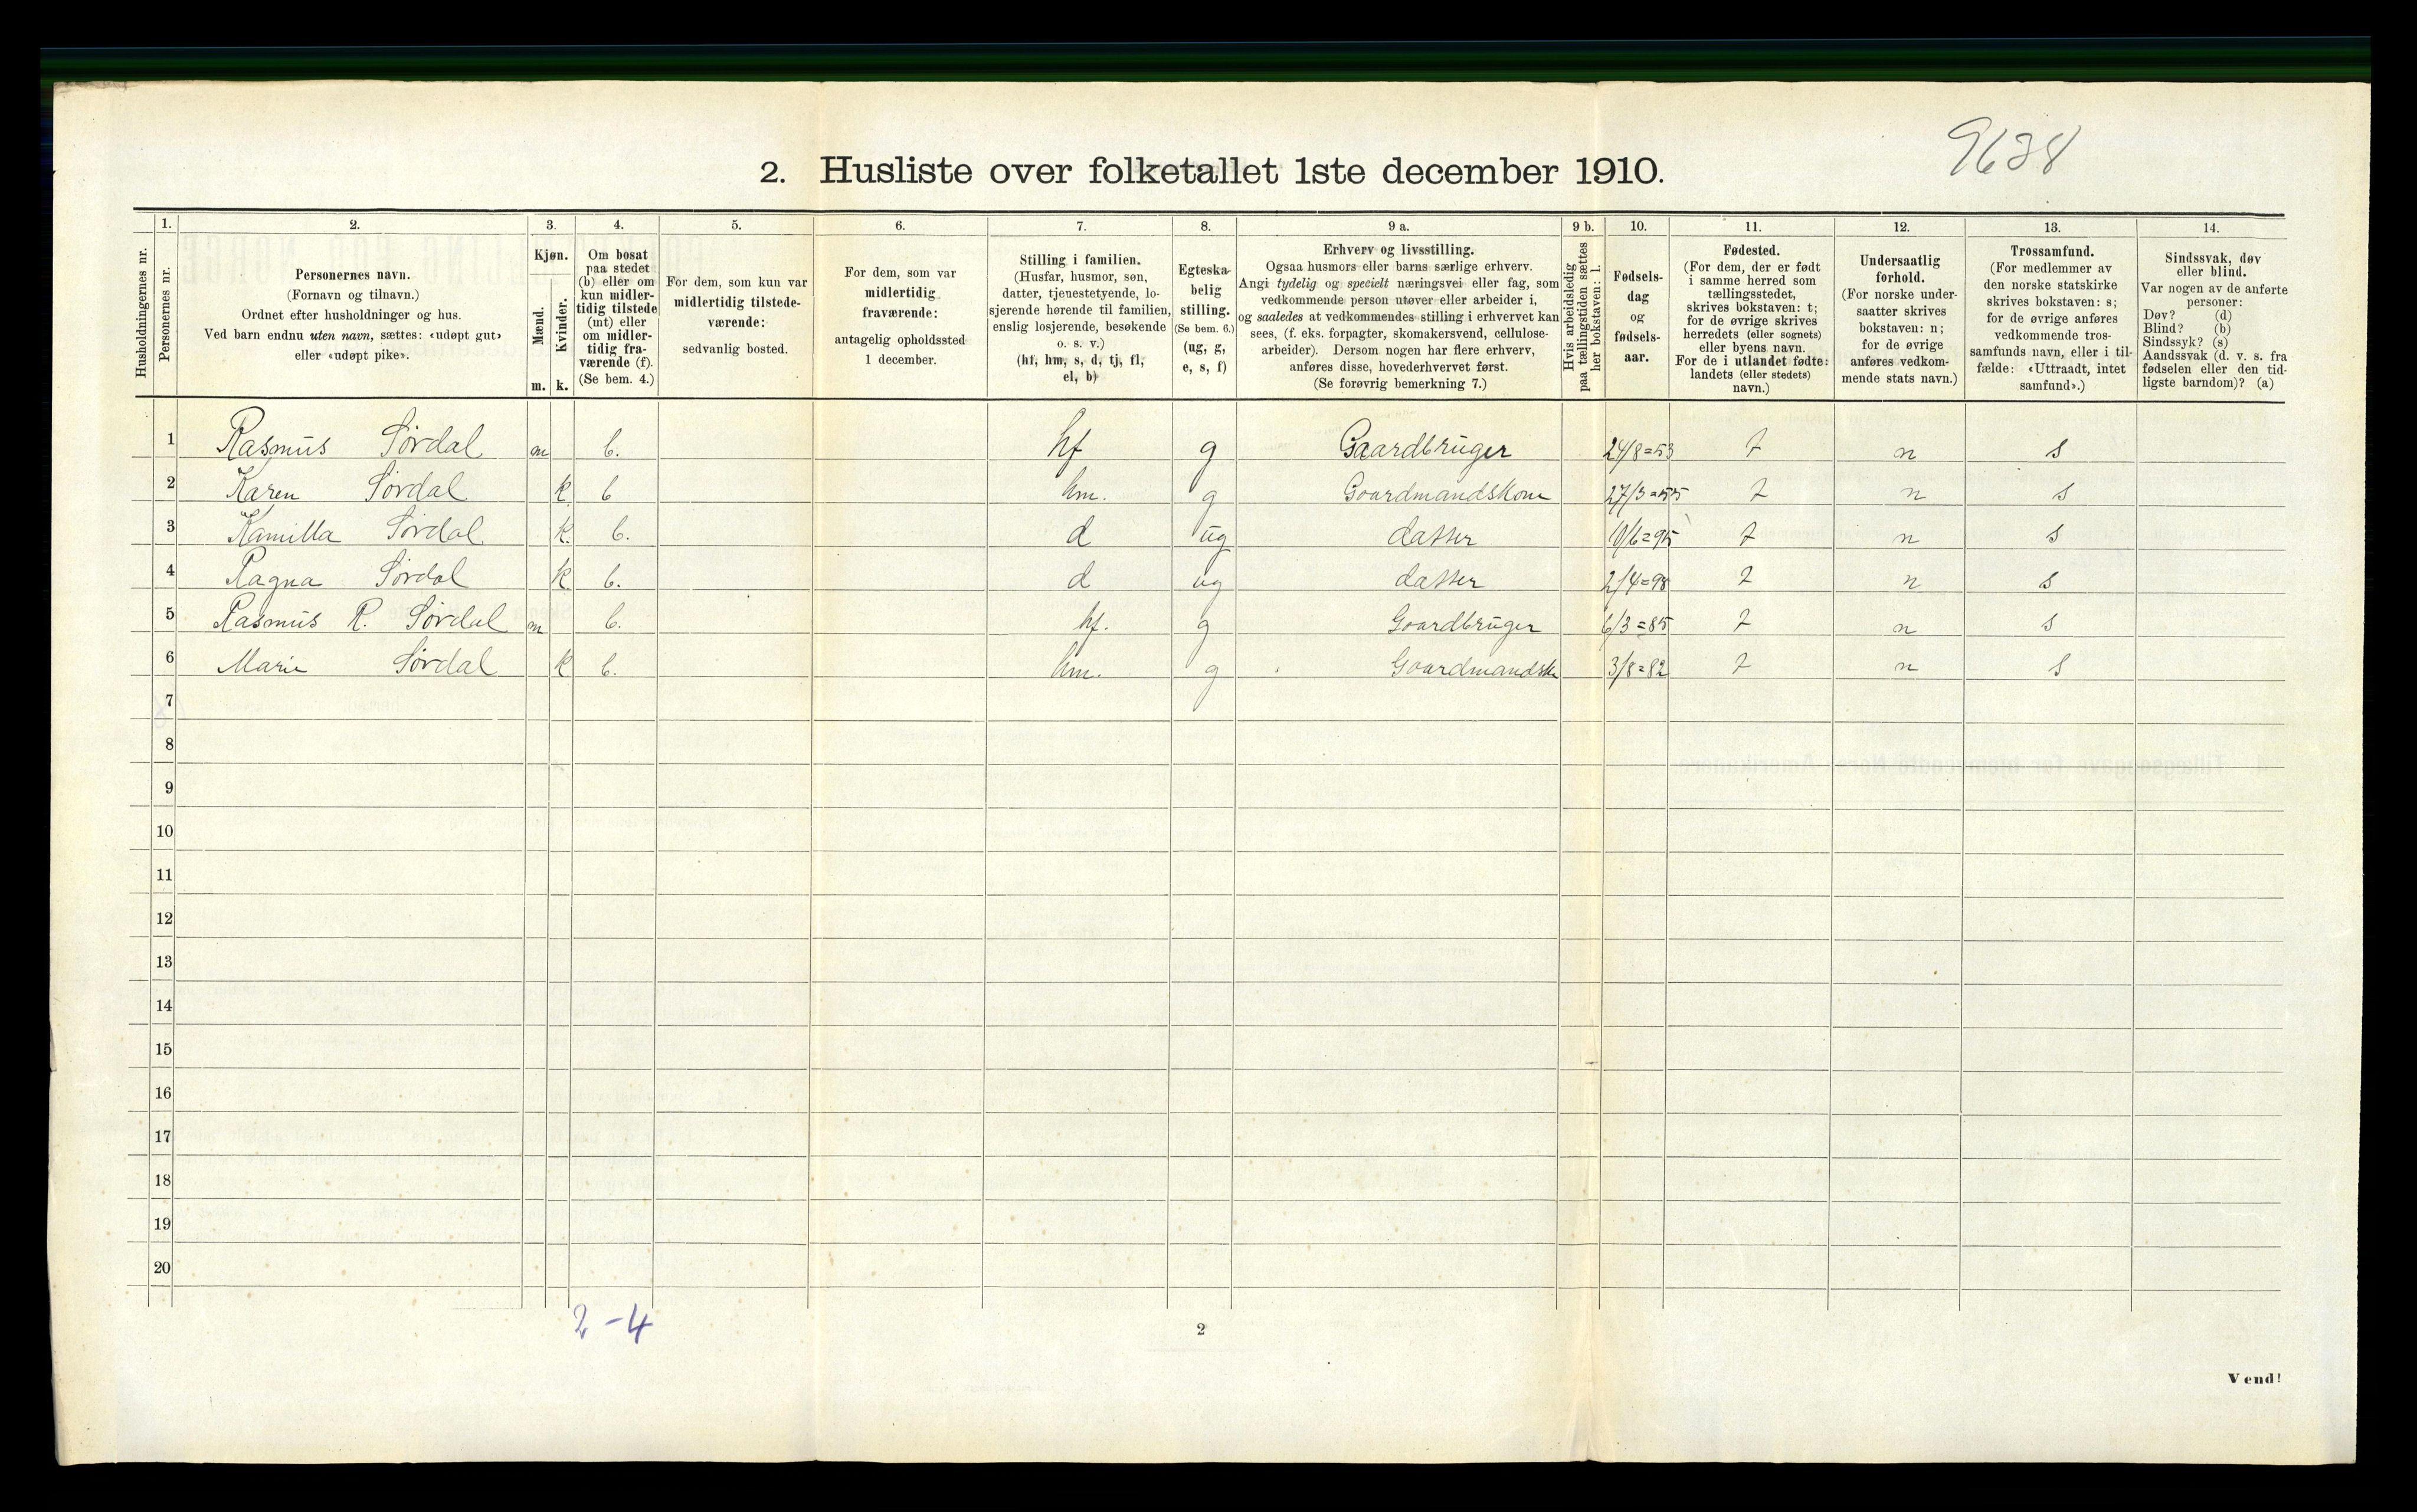 9638
2. Husliste over folketallet 1ste december 1910.
Husholdningernes nr.
1.
Personernes nr.
2.
Personernes navn.
(Fornavn og tilnavn.)
Ordnet efter husholdninger og hus.
Ved barn endnu uten navn, sættes: «udøpt gut»
eller «udøpt pike».
3.
Kjøn.
Mænd.
Kvinder.
m. k.
4.
Om bosat
paa stedet
(b) eller om
kun midler-
tidig tilstede
(mt) eller
om midler-
tidig fra-
værende (f).
(Se bem. 4.)
5.
For dem, som kun var
midlertidig tilstede-
værende:
sedvanlig bosted.
6.
For dem, som var
midlertidig
fraværende:
antagelig opholdssted
1 december.
7.
Stilling i familien.
(Husfar, husmor, søn,
datter, tjenestetyende, lo-
sjerende hørende til familien,
enslig losjerende, besøkende
o. s. v.)
(hf, hm, s, d, tj, fl,
el, b)
8.
Egteska-
belig
stilling.
(Se bem. 6.)
(ug, g,
e, s, f)
9 a.
Erhverv og livsstilling.
Ogsaa husmors eller barns særlige erhverv.
Angi tydelig og specielt næringsvei eller fag, som
vedkommende person utøver eller arbeider i,
og saaledes at vedkommendes stilling i erhvervet kan
sees, (f. eks. forpagter, skomakersvend, cellulose-
arbeider). Dersom nogen har flere erhverv,
anføres disse, hovederhvervet først.
(Se forøvrig bemerkning 7.)
9 b.
Hvis arbeidsledig
paa tællingstiden sættes
her bokstaven: l.
10.
Fødsels-
dag
og
fødsels-
aar.
11.
Fødested.
(For dem, der er født
i samme herred som
tællingsstedet,
skrives bokstaven: t;
for de øvrige skrives
herredets (eller sognets)
eller byens navn.
For de i utlandet fødte:
landets (eller stedets)
navn.)
12.
Undersaatlig
forhold.
(For norske under-
saatter skrives
bokstaven: n;
for de øvrige
anføres vedkom-
mende stats navn.)
13.
Trossamfund.
(For medlemmer av
den norske statskirke
skrives bokstaven: s;
for de øvrige anføres
vedkommende tros-
samfunds navn, eller i til-
fælde: «Uttraadt, intet
samfund».)
14.
Sindssvak, døv
eller blind.
Var nogen av de anførte
personer:
Døv? (d)
Blind? (b)
Sindssyk? (s)
Aandssvak (d. v. s. fra
fødselen eller den tid-
ligste barndom)? (a)
1 Rasmus Sørdal m b. hf g Gaardbruger 24/8=53 t n s
2 Karen Sørdal k b hm. g Gaardmandskone 27/3=55 t n s
3 Kamilla Sørdal k. b. d ug datter 10/6=95 t n s
4 Ragna Sørdal k b. d ug datter 2/4=98 t n s
5 Rasmus R. Sørdal m b. hf. g Gaardbruger 6/3=85 t n s
6 Marie Sørdal k b. hm. g Gaardmandsk 3/8=82 t n s
7
8
9
10
11
12
13
14
15
16
17
18
19
20
2-4
2
Vend!